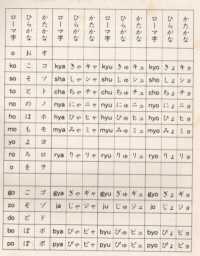 ローマ字 ひらがな かたかな ローマ字 ひらがな かたかな ローマ字 ひらがな かたかな ローマ字 ひらがな かたかな
o お オ
ko こ コ kya きゃ キャ kyu きゅ キュ kyo きょ キョ
so そ ソ sha しゃ シャ shu しゅ シュ sho しょ ショ
to と ト cha ちゃ チャ chu ちゅ チュ cho ちょ チョ
no の ノ nya にゃ ニャ nyu にゅ ニュ nyo にょ ニョ
ho ほ ホ hya ひゃ ヒャ hyu ひゅ ヒュ hyo ひょ ヒョ
mo も モ mya みゃ ミャ myu みゅ ミュ myo みょ ミョ
yo よ ヨ
ro ろ ロ rya りゃ リャ ryu りゅ リュ ryo りょ リョ
o を ヲ
go ご ゴ gya ぎゃ ギャ gyu ぎゅ ギュ gyo ぎょ ギョ
zo ぞ ゾ ja じゃ ジャ ju じゅ ジュ jo じょ ジョ
do ど ド
bo ぼ ボ bya びゃ ビャ byu びゅ ビュ byo びょ ビョ
po ぽ ポ pya ぴゃ ピャ pyu ぴゅ ピュ pyo ぴょ ピョ